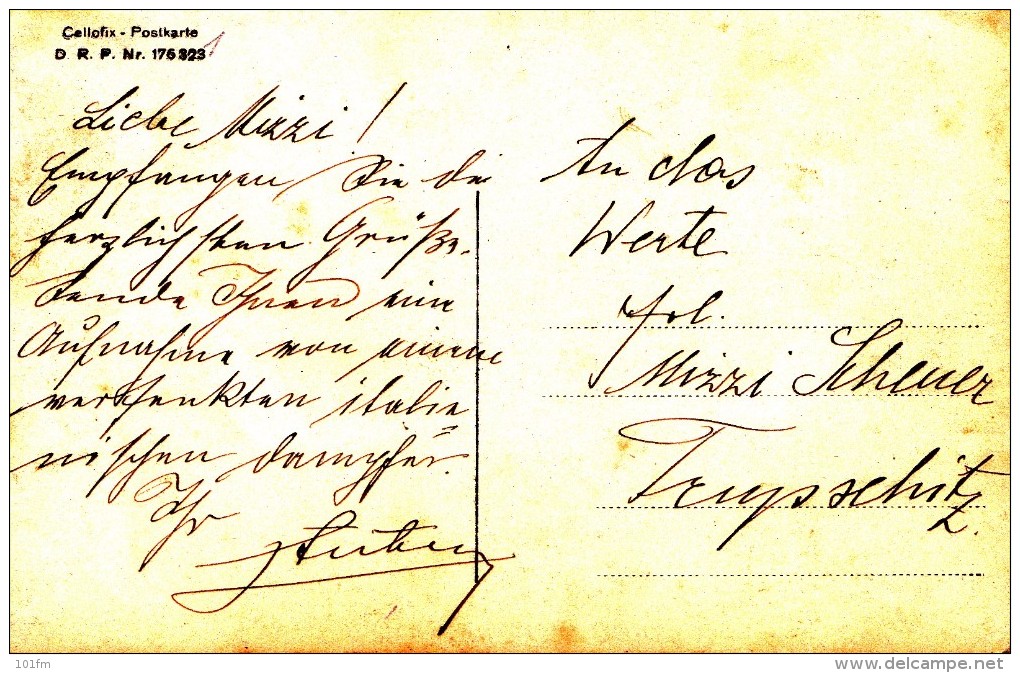 Cellofix - Postkarte
D. R. P. Nr. 176323
Liebe Mizzi !
Empfangen Sie die
herzlichsten Grüße.
Sende Ihnen eine
Aufnahme von einem
versenkten italie
nischen Dampfer.
Ihr
An das
Werte
Frl.
Mizzi Scheuer
101fm
www.delcampe.net